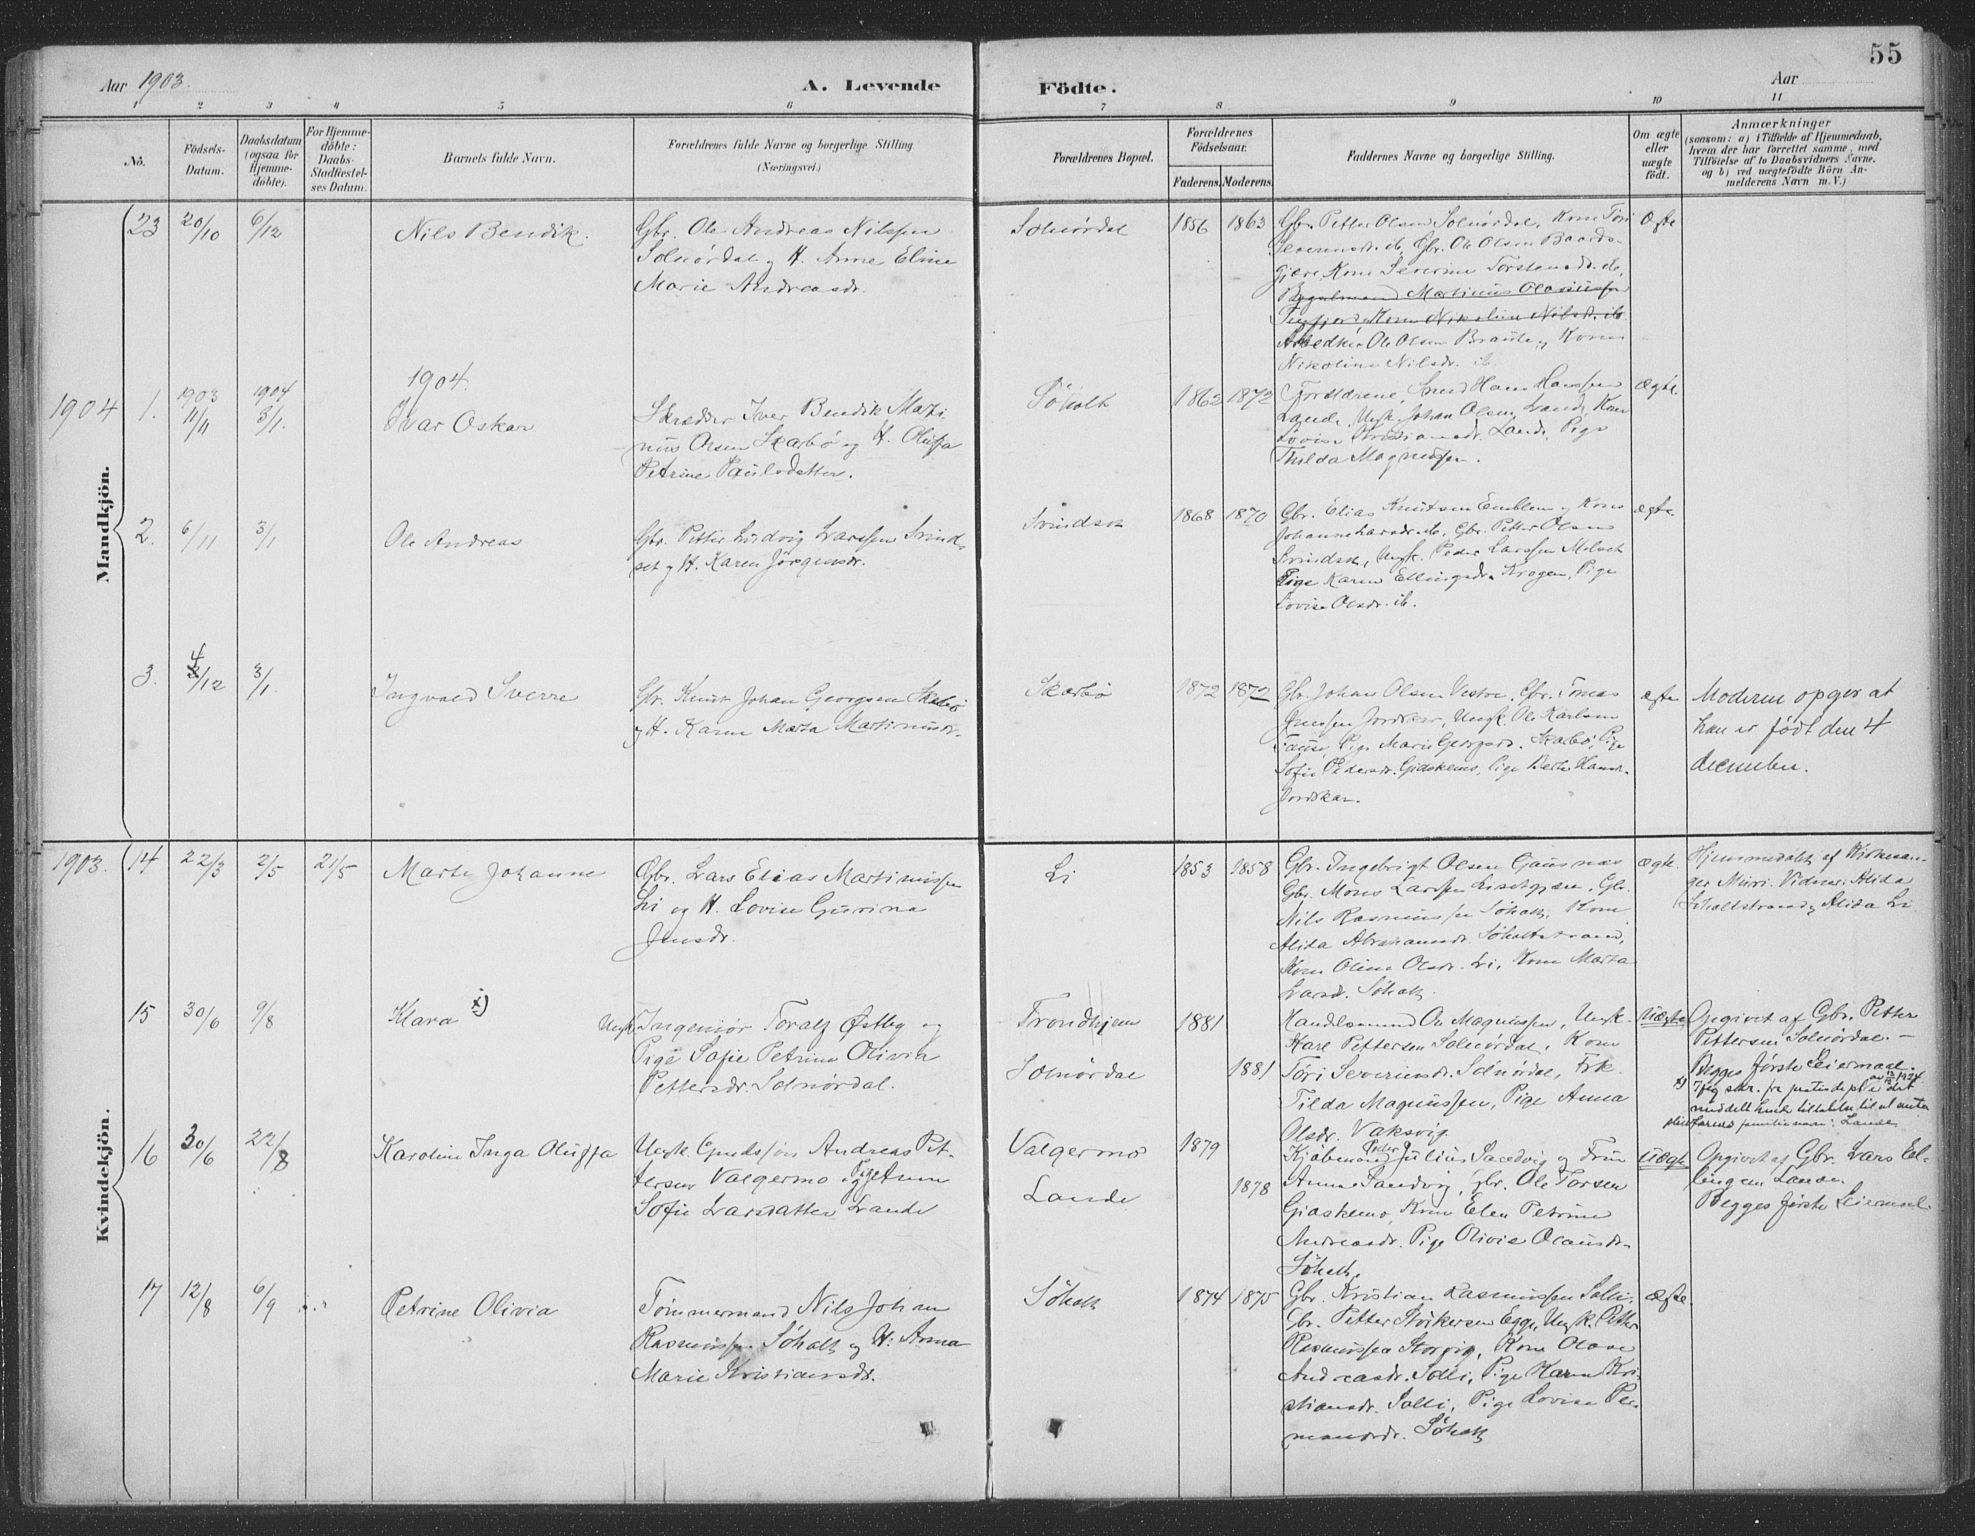 Aar 1903.
A. Levende
Födte.
Aar
55
1 2 3 4 5 6 7 8 9 10 11
No.
Födsels-
Datum.
Daabsdatum
(ogsaa for
Hjemme-
döbte).
For Hjemme-
döbte:
Daabs-
Stadfæstel-
ses Datum.
Barnets fulde Navn.
Forældrenes fulde Navne og borgerlige Stilling
(Næringsvei.)
Forældrenes Bopæl.
Forældrenes
Födselsaar.
Faderens. Moderens.
Faddernes Navne og borgerlige Stilling.
Om ægte
eller
uægte
födt.
Anmærkninger
(saasom: a) i Tilfælde af Hjemmedaab,
hvem der har forrettet samme, med
Tilföielse af to Daabsvidners Navne.
og b) ved uægtefödte Börn An-
melderens Navn m. V.)
Mandkjön.
23 20/10 6/12
Nils Bendik.
Gbr. Ole Andreas Nilssen
Solnørdal og H. Anne Eline
Marie Andreasdr.
Solnørdal
1856 1863
Gbr. Petter Olsen Solnørdal, Kone Töri
Severinsdr. ib, Gbr. Ole Olsen Baards-
gjære, Kone Severine Torstensdr. ib,
Martinus Olaussen
Kone Nikoline Nilsdr. ib.
Ole Olsen Braute og Kone
Nikoline Nilsdr. ib.
Ægte
1904
1904.
1. 1903 11/11 1904 3/1.
Ivar Oskar
Skrædder Iver Bendik Marti
nus Olsen Skarbø og H. Oluffa
Petrine Paulsdatter.
Søholt
1862 1872
Forældrene, Smed Hans Hanssen
Lande, Ungk. Johan Olsen Lande, Kone
Lovise Kristiansdr. Lande, Pige
Thilda Magnussen.
ægte
2. 6/11 3/1
Ole Andreas
Gbr. Petter Ludvig Larssen Svind-
set og H. Karen Jørgensdr.
Svindset
1868 1870
Gbr. Elias Knutsen Emblem og Kone
Johanne Larsdr. ib, Gbr. Petter Olsen
Svindset, Ungk. Peder Larssen Melset
Pige Karen Ellingsdr. Krogen, Pige
Lovise Olsdr. ib.
ægte.
3. 4/12 3/1.
Ingvald Sverre
Gbr. Knut Johan Georgsen Skarbø
og H. Karen Marta Martinusdr.
Skarbø
1872 1872
Gbr. Johan Olsen Vestre, Gbr. Tomas
Jenssen Jordskar, Ungk. Ole Karlsen
Pige Marie Georgsdr. Skarbø, Pige
Sofie Pedersdr. Gidskemo, Pige Berte Hansdr.
Jordskar.
ægte
Moderen opgir at
han er født den 4
december.
Kvindekjön.
1903. 14 22/3 2/5 21/5
Marte Johanne
Gbr. Lars Elias Martinussen
Li og H. Lovise Gurina
Jensdr.
Li
1853 1858
Gbr. Ingebrigt Olsen Gausnæs
Gbr. Mons Larssen Lisetgjære, Gbr.
Nils Rasmussen Søholt, Kone
Alida Abrahamsdr. Søholtstrand,
Kone Oline Olsdr. Li, Kone Marta
Larsdr. Søholt.
ægte.
Hjemmedøbt af
Vidner: Alida
Søholtstrand og Alida Li
15 30/6 9/8
Klara x)
Ungk. Ingeniør Toralf Østby og
Pige Sofie Petrine Olivia
Pettersdr. Solnørdal.
Trondhjem
Solnørdal
1881
1881
Handelsmand Ole Magnussen, Ungk.
Karl Pettersen Solnørdal, Kone
Töri Severinsdr. Solnørdal, Frk.
Tilda Magnussen, Pige Anna
Olsdr. Vaksvig
Uægte
Opgivet af Gbr. Petter
Pettersen Solnørdal. —
Begges første Leiermaal.
x) Ifølg skr. fra justisdep. av 1924 er det
meddelt hende tilladelse til at anta
familienavn: Lande
16 30/6 22/8
Karoline Inga Oluffa
Ungk. Gaardssøn Andreas Pet-
tersen Valgermo og Pige Anne
Sofie Larsdatter Lande
Valgermo
Lande
1879
1878
Kjøbmand Peder Julius Sandvig og Frue
Anna Sandvig, Gbr. Ole Larsen
Gidskemo, Kone Elen Petrine
Andreasdr. Pige Olivie Olausdr.
Søholt.
Uægte
Opgivet af Gbr. Lars El-
lingsen Lande.
Begges første Leiermaal.
17 12/8 6/9
Petrine Olivia
Tømmermand Nils Johan
Rasmussen Søholt og H. Anna
Marie Kristiansdr.
Søholt
1874 1875
Gbr. Kristian Rasmussen Solli,
Gbr. Petter Egge, Ungk. Petter
Rasmussen Kone Olave
Andreasdr. Solli, Pige Karen Kri-
stiansdr. Solli, Pige Lovise Pe-
Søholt
Ægte.